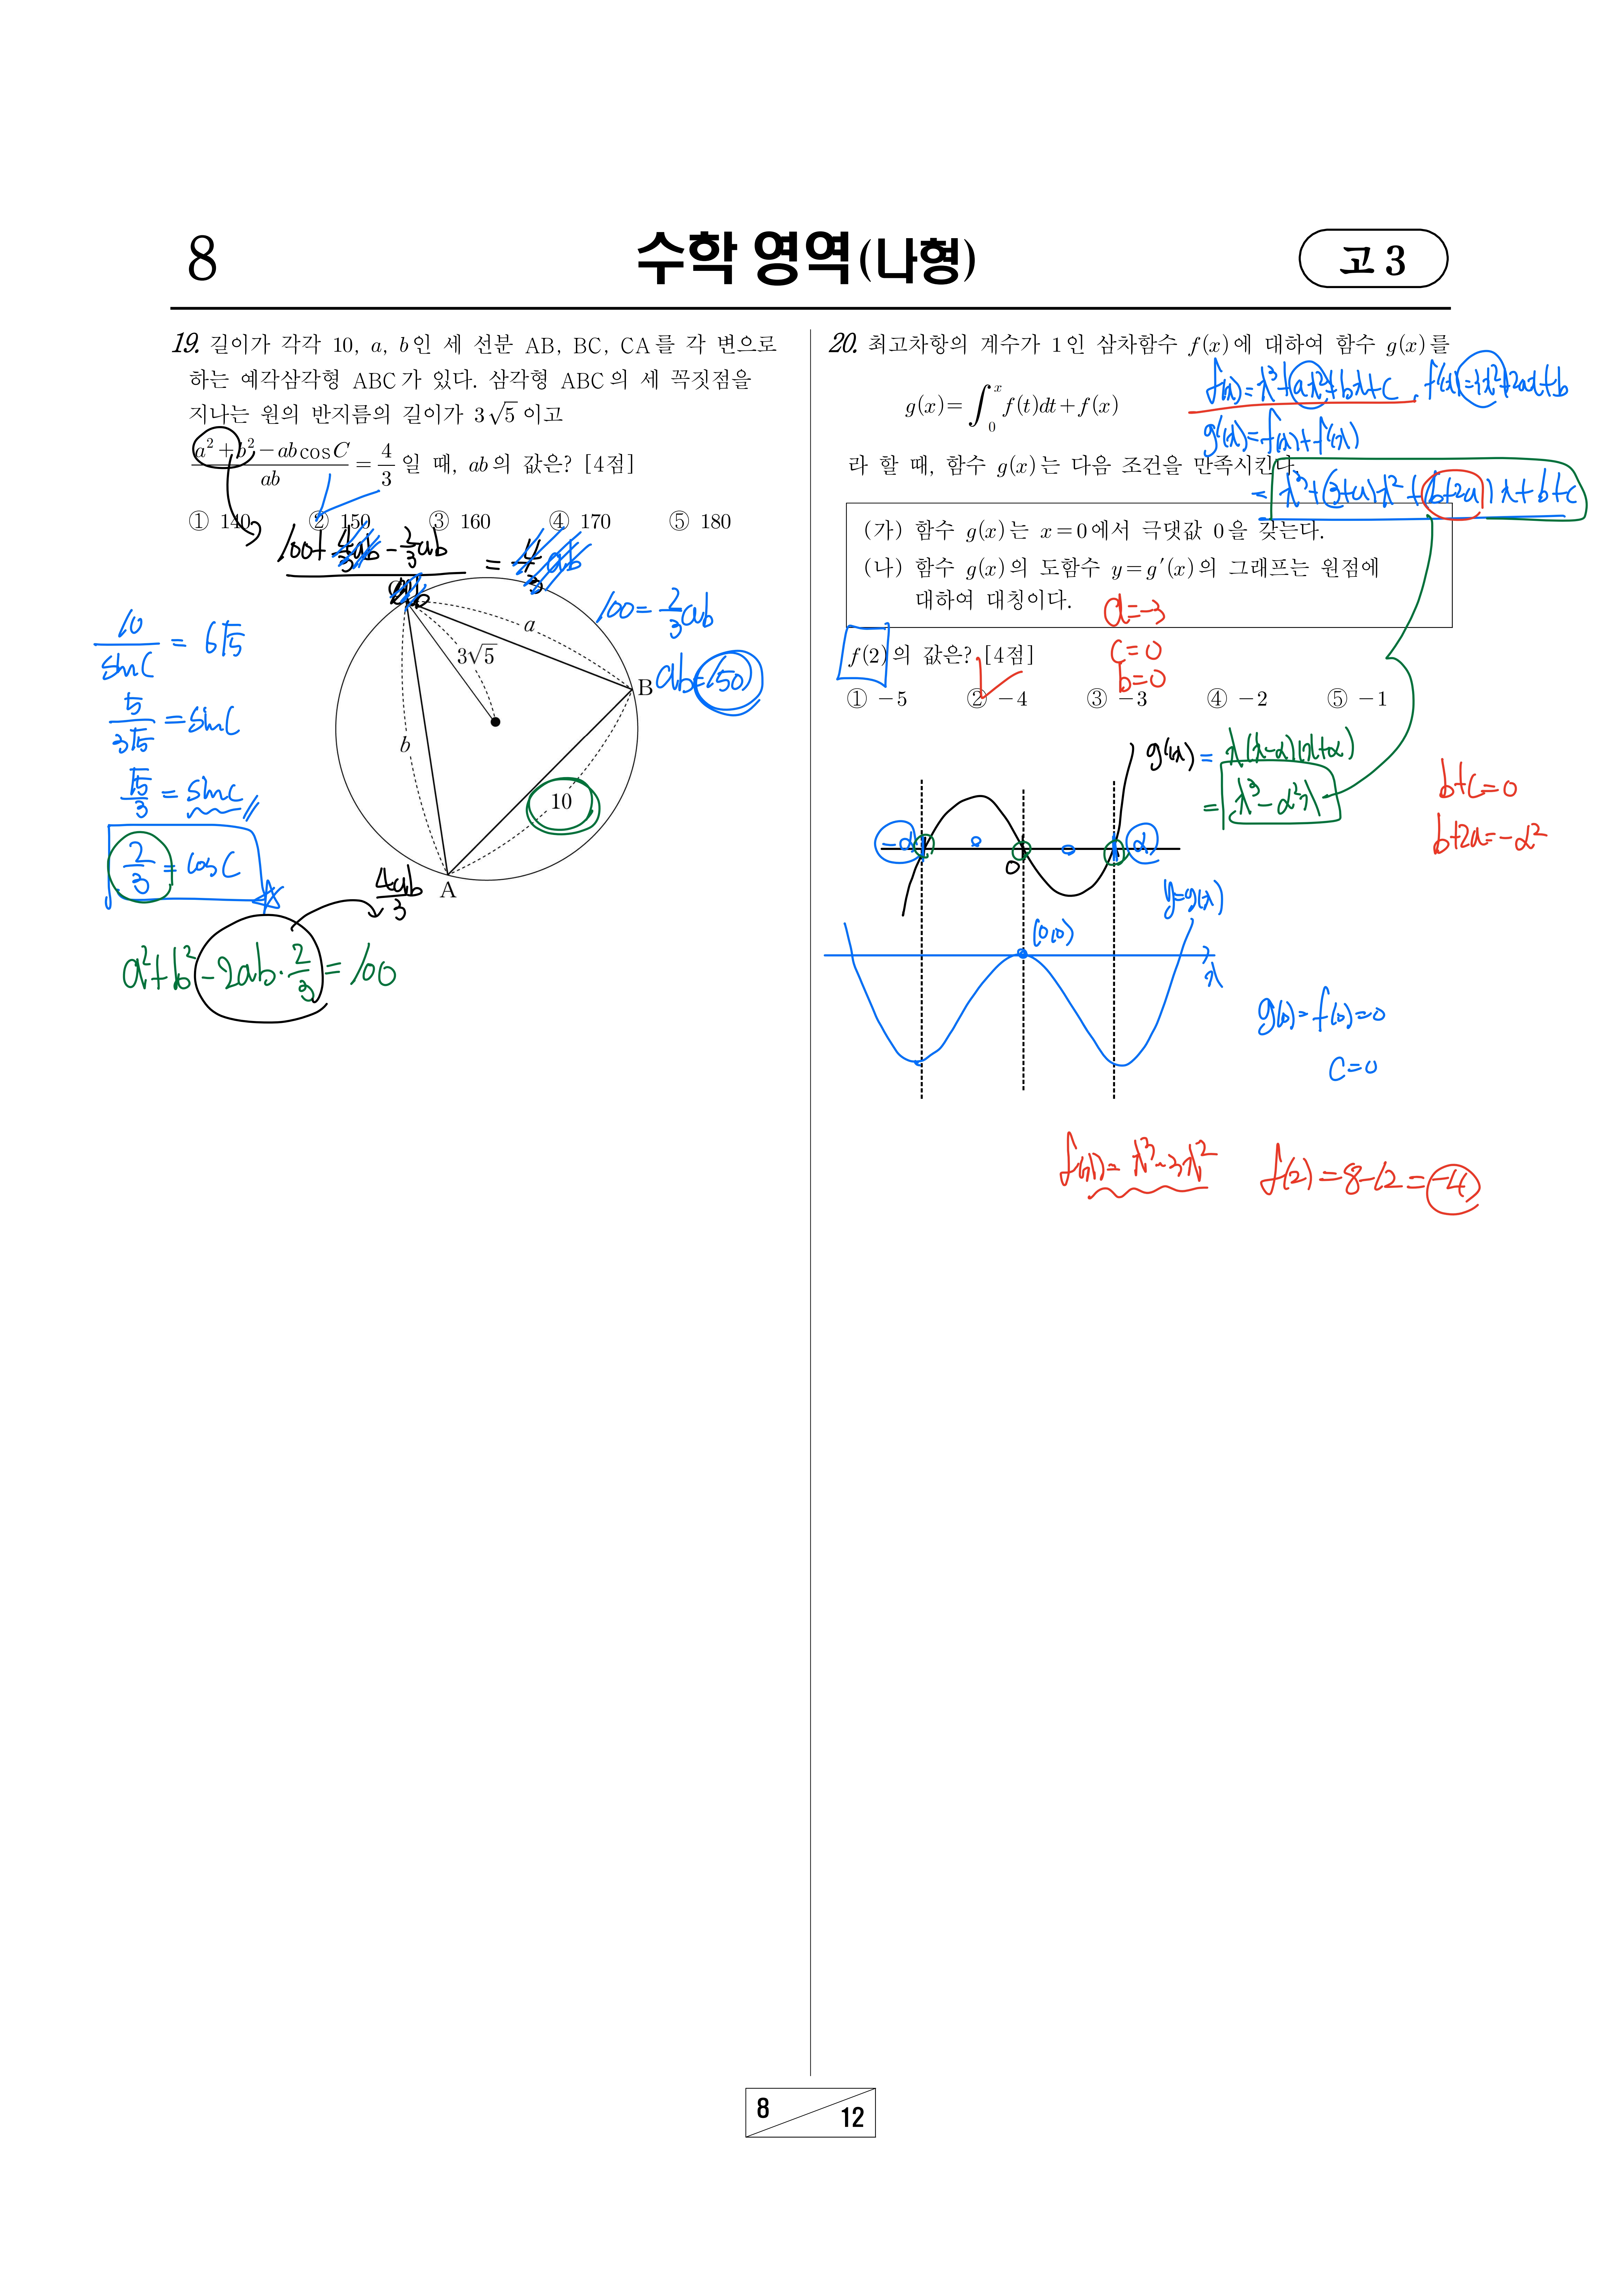 8
수학 영역(나형)
고 3
19. 길이가 각각 10, a, b인 세 선분 AB, BC, CA를 각 변으로
하는 예각삼각형 ABC가 있다. 삼각형 ABC의 세 꼭짓점을
지나는 원의 반지름의 길이가 3√5 이고
(a²+b²−ab cos C)/ab = 4/3 일 때, ab의 값은? [4점]
① 140 ② 150 ③ 160 ④ 170 ⑤ 180
100+4/3ab−2/3ab = 4/3ab
100=2/3ab
ab=150
10/sinC = 6√5
5/3√5 = sinC
√5/3 = sinC
2/3 = cosC
4ab/3
a²+b²−2ab·2/3=100
a
3√5
B
b
10
A
20. 최고차항의 계수가 1인 삼차함수 f(x)에 대하여 함수 g(x)를
g(x)=∫₀ˣ f(t)dt+f(x)
f(x)=x³+ax²+bx+c, f'(x)=3x²+2ax+b
g'(x)=f(x)+f'(x)
라 할 때, 함수 g(x)는 다음 조건을 만족시킨다.
= x³+(3+a)x²+(b+2a)x+b+c
(가) 함수 g(x)는 x=0에서 극댓값 0을 갖는다.
(나) 함수 g(x)의 도함수 y=g′(x)의 그래프는 원점에
대하여 대칭이다.
a=−3
c=0
b=0
f(2)의 값은? [4점]
① −5 ② −4 ③ −3 ④ −2 ⑤ −1
g'(x) = x(x−α)(x+α)
= x³−α²x
b+c=0
b+2a=−α²
−α
0
α
y=g(x)
(0,0)
x
g(0)=f(0)=0
c=0
f(x)=x³−3x²
f(2)=8−12=−4
8
12